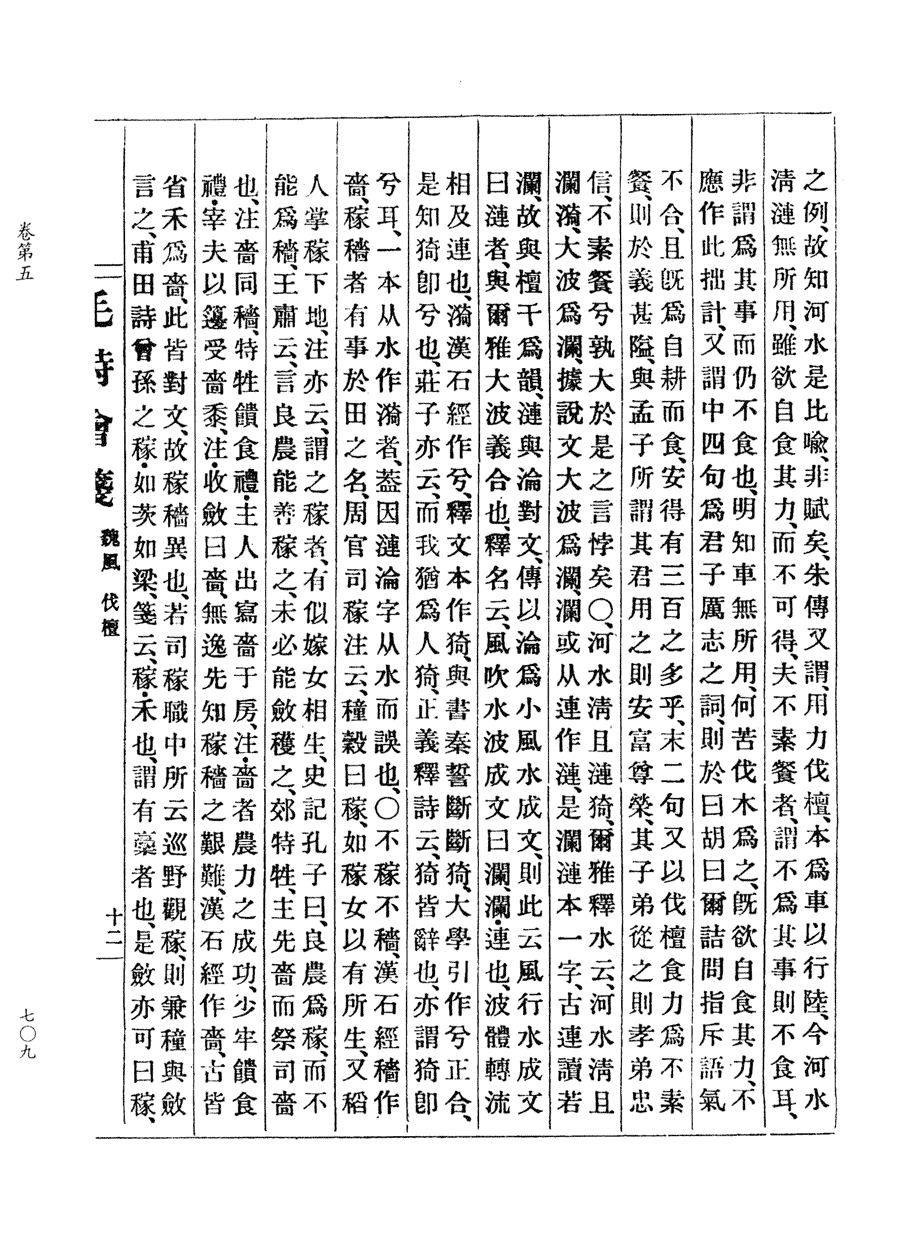 之例、故知河水是比喩、非賦矣、朱傳又謂、用力伐檀、本爲車以行陸、今河水
淸漣無所用、雖欲自食其力、而不可得、夫不素餐者、謂不爲其事則不食耳、
非謂爲其事而仍不食也、明知車無所用、何苦伐木爲之、旣欲自食其力、不
應作此拙計、又謂中四句爲君子厲志之詞、則於曰胡曰爾詰問指斥語氣
不合、且旣爲自耕而食、安得有三百之多乎、末二句又以伐檀食力爲不素
餐、則於義甚隘、與孟子所謂其君用之則安富尊榮、其子弟從之則孝弟忠
信、不素餐兮孰大於是之言悖矣〇、河水淸且漣猗、爾雅釋水云、河水淸且
瀾漪、大波爲瀾、據說文大波爲瀾、瀾或从連作漣、是瀾漣本一字、古連讀若
瀾、故與檀干爲韻、漣與淪對文、傳以淪爲小風水成文、則此云風行水成文
曰漣者、與爾雅大波義合也、釋名云、風吹水波成文曰瀾、瀾・連也、波體轉流
相及連也、漪漢石經作兮、釋文本作猗、與書秦誓斷斷猗、大學引作兮正合、
是知猗卽兮也、莊子亦云、而我猶爲人猗、正義釋詩云、猗皆辭也、亦謂猗卽
兮耳、一本从水作漪者、蓋因漣淪字从水而誤也、〇不稼不穡、漢石經穡作
嗇、稼穡者有事於田之名、周官司稼注云、種穀曰稼、如稼女以有所生、又稻
人掌稼下地、注亦云、謂之稼者、有似嫁女相生、史記孔子曰、良農爲稼、而不
能爲穡、王肅云、言良農能善稼之、未必能斂穫之、郊特牲、主先嗇而祭司嗇
也、注嗇同穡、特牲饋食禮・主人出寫嗇于房、注・嗇者農力之成功、少牢饋食
禮・宰夫以籩受嗇黍、注・收斂曰嗇、無逸先知稼穡之艱難、漢石經作嗇、古皆
省禾爲嗇、此皆對文、故稼穡異也、若司稼職中所云巡野觀稼、則兼種與斂
言之、甫田詩曾孫之稼・如茨如梁、箋云、稼・禾也、謂有藁者也、是斂亦可曰稼、
毛詩會箋 魏風 伐檀
十二
卷第五
七〇九